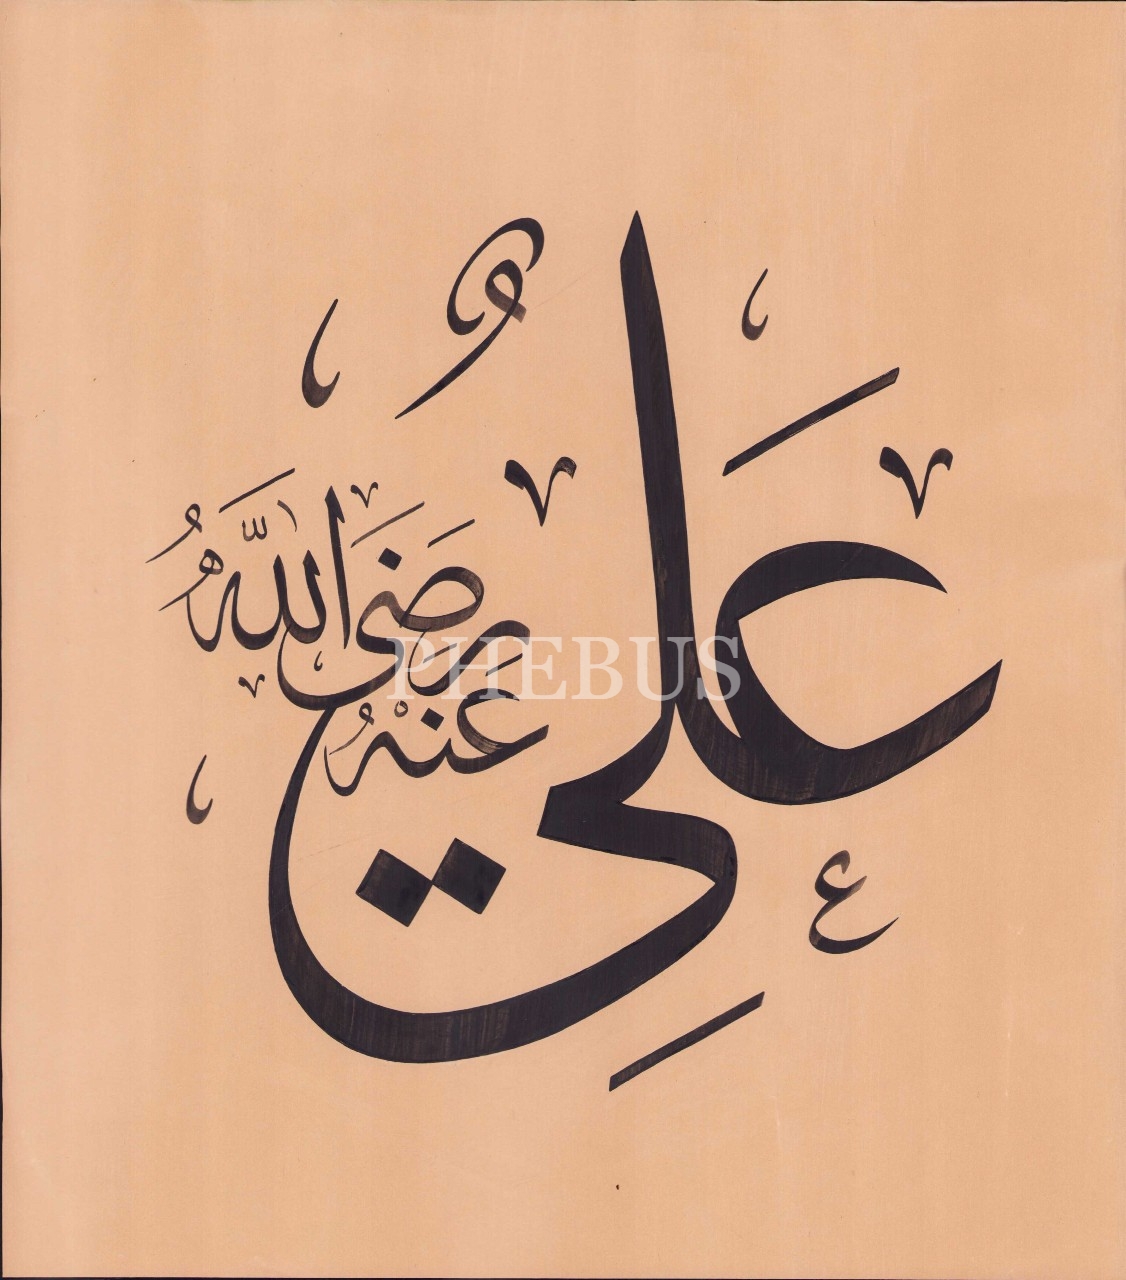 عَلِيٌّ
رَضَىَ اللّٰهُ
عَنْهُ
PHEBUS